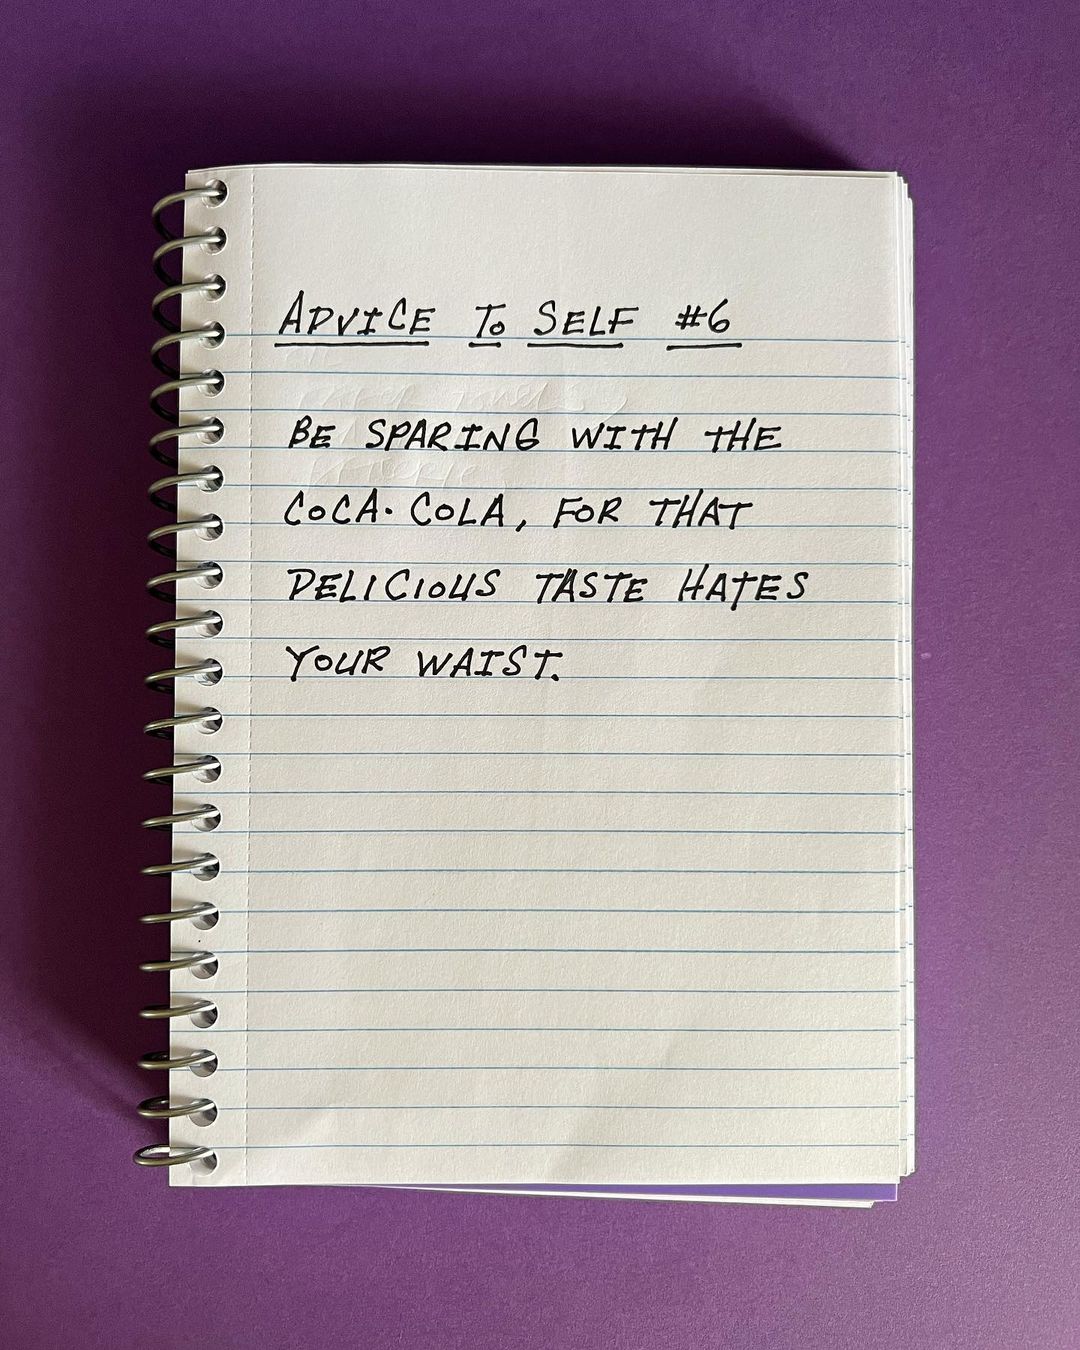 ADVICE TO SELF #6
BE SPARING WITH THE
COCA-COLA, FOR THAT
DELICIOUS TASTE HATES
YOUR WAIST.